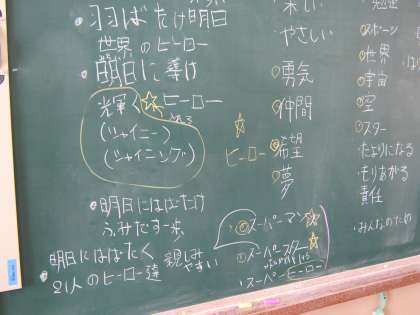 羽ばたけ明日
世界のヒーロー
明日に導け
輝く☆ヒーロー
(シャイニー)
(シャイニング)
明日にはばたけ
ふみだす一歩
明日にはばたく
21人のヒーロー達
親しみ
やすい
☆
ヒーロー
楽しい
やさしい
勇気
仲間
希望
夢
スーパーマン☆
スーパースター☆
スーパーヒーロー
スポーツ
世界
宇宙
空
スター
たよりになる
もりあがる
責任
みんなのため